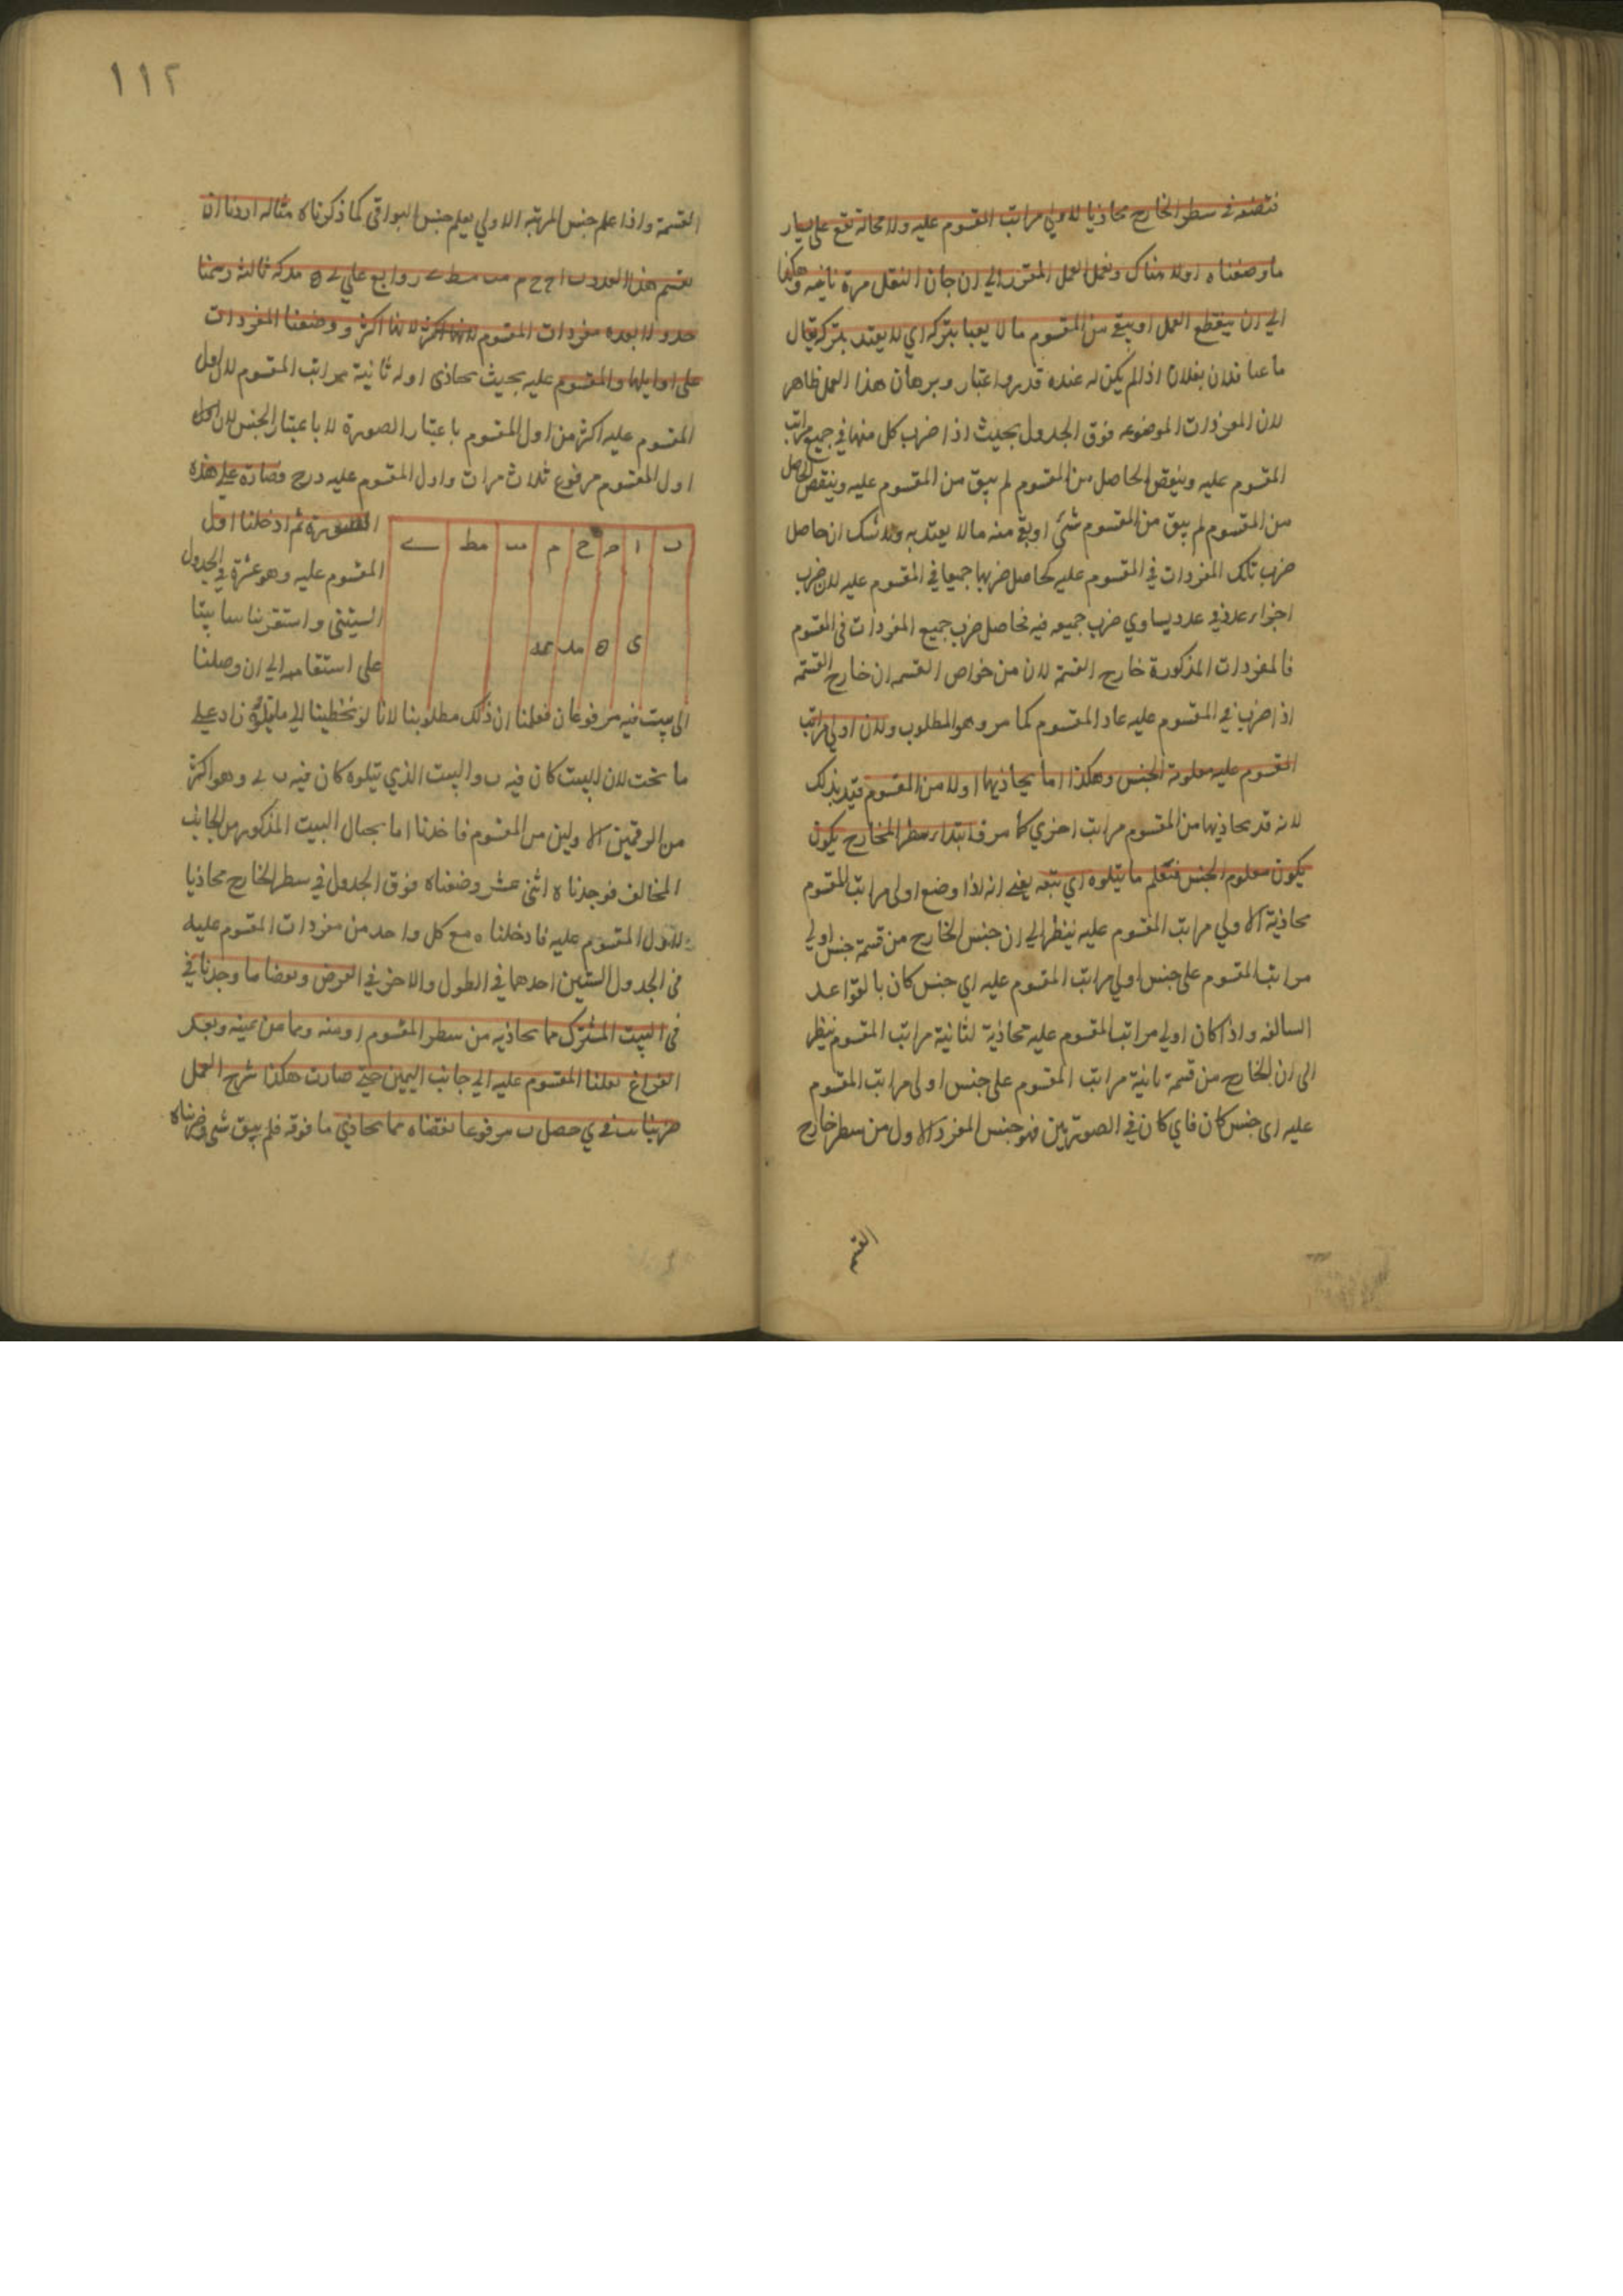 فنضعه في سطر الخارج محاذيا لاولي مراتب المقسوم عليه ولا محالة يقع علي يسار
ما وضعناه اولا هناك ونعمل العمل المقرر الي ان حان النقل مرة ثانية وهكذا
الي ان ينقطع العمل او يبقي من المقسوم ما لا يعبا بتركه اي لا يعتد بتركه يقال
ما عبا فلان بفلان اذا لم يكن له عنده قدر واعتبار وبرهان هذا العمل ظاهر
لان المفردات الموضوعه فوق الجدول بحيث اذا ضرب كل منها في جميع مراتب
المقسوم عليه وينقص الحاصل من المقسوم لم يبق من المقسوم عليه وينقص الحاصل
من المقسوم لم يبق من المقسوم شئ او بقي منه ما لا يعتد به ولا شك ان حاصل
ضرب تلك المفردات في المقسوم عليه كحاصل ضربها جميعا في المقسوم عليه لان ضرب
اجزاء عدد في عدد يساوي ضرب جميعه فيه فحاصل ضرب جميع المفردات في المقسوم
فالمفردات المذكورة خارج القسمة لان من خواص القسمه ان خارج القسمة
اذا ضرب في المقسوم عليه عاد المقسوم كما مر وهو المطلوب ولان اولي مراتب
المقسوم عليه معلومة الجنس وهكذا اما يحاذيها اولا من المقسوم قيد بذلك
لانه قد يحاذيها من المقسوم مراتب اخري كما مر فابتداء سطر الخارج يكون
يكون معلوم الجنس فنعلم ما يتلوه اي يتبعه يعني انه اذا وضع اولي مراتب المقسوم
محاذية الاولي مراتب المقسوم عليه ينظر الي ان جنس الخارج من قسمة جنس اولي
مراتب المقسوم علي جنس اولي مراتب المقسوم عليه اي جنس كان بالقواعد
السالفه واذا كان اولي مراتب المقسوم عليه محاذية لثانية مراتب المقسوم ينظر
الي ان الخارج من قسمة ثانية مراتب المقسوم علي جنس اولي مراتب المقسوم
عليه اي جنس كان فاي كان في الصورتين فهو جنس المفرد الاول من سطر خارج
القسمة
١١٢
القسمة واذا علم جنس المرتبة الاولي يعلم جنس البواقي كما ذكرناه مثاله اردنا ان
نقسم هذا العدد ب ا ح ح م مب مط ے روابع علي ے ه مد كه ثالثة رسمنا
جدولا بعده مفردات المقسوم لانها اكثر ووضعنا المفردات
علي اوايلها والمقسوم عليه بحيث يحاذي اوله ثانية مراتب المقسوم لان اول
المقسوم عليه اكثر من اول المقسوم باعتبار الصورة لا باعتبار الجنس لان اول
اول المقسوم مرفوع ثلاث مرات واول المقسوم عليه درج فصارة علي هذه
الصورة ثم ادخلنا اول
المقسوم عليه وهو عشرة في الجدول
الستيني واستقرينا بيتا بيتا
علي استقامه الي ان وصلنا
ب ا ح ح م مب مط ے
ى ه مد كه
الي بيت فيه مرفوعان فعلمنا ان ذلك مطلوبنا لانا لو تخطينا الي ما يتلوه زاد علي
ما تحت لان البيت كان فيه ب والبيت الذي يتلوه كان فيه ب ے وهو اكثر
من الرقمين الاولين من المقسوم فاخذنا اما بحيال البيت المذكور من الجانب
المخالف فوجدناه اثني عشر وضعناه فوق الجدول في سطر الخارج محاذيا
للاول المقسوم عليه فادخلناه مع كل واحد من مفردات المقسوم عليه
في الجدول الستين احدهما في الطول والاخر في العرض ونقصنا ما وجدنا في
في البيت المشترك مما يحاذيه من سطر المقسوم او منه ومما من يمينه وبعد
الفراغ نقلنا المقسوم عليه الي جانب اليمين حتي صارت هكذا شرح العمل
ضربنا يب في ي حصل ب مرفوعا نقصناه مما يحاذي ما فوقه فلم يبق شي وضربناه